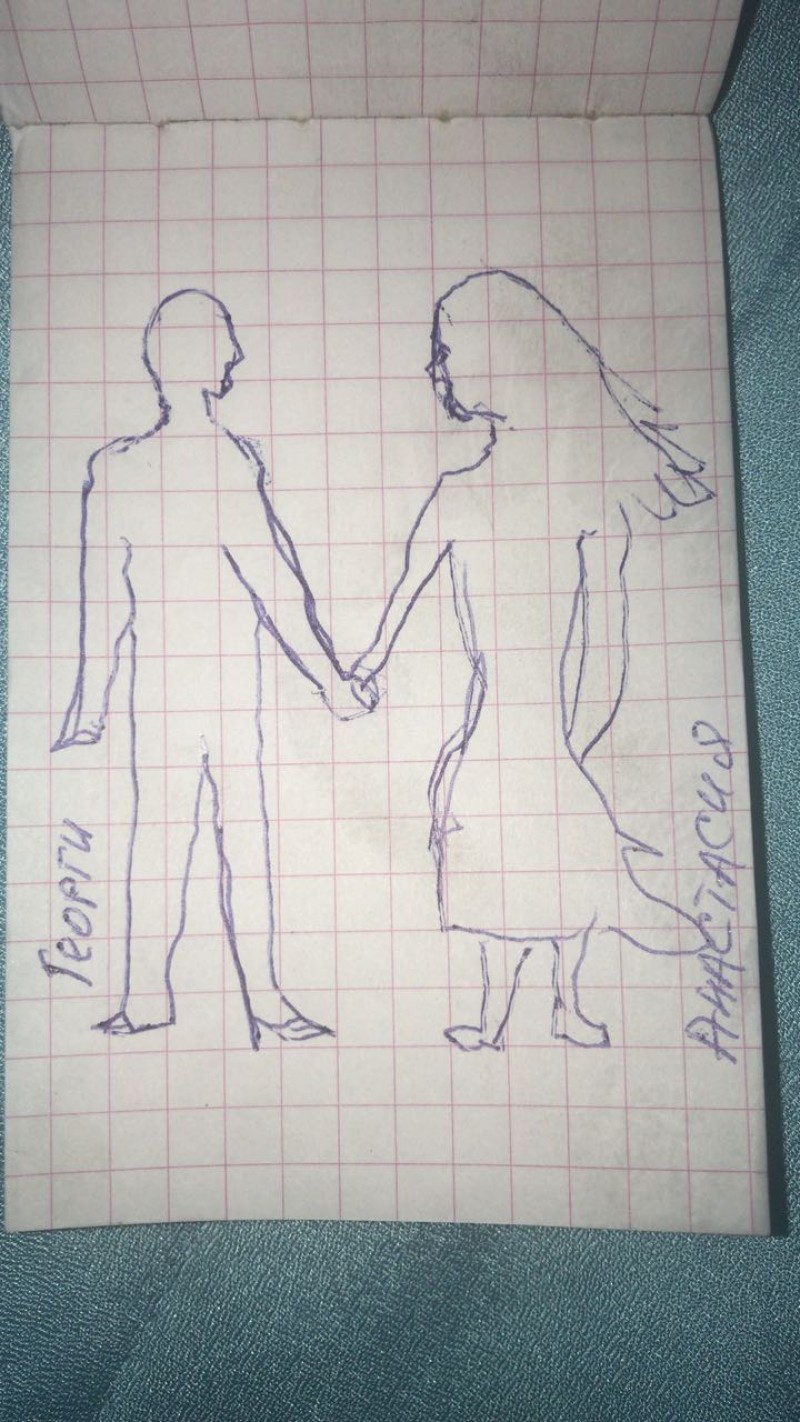 Георги
Анастасия